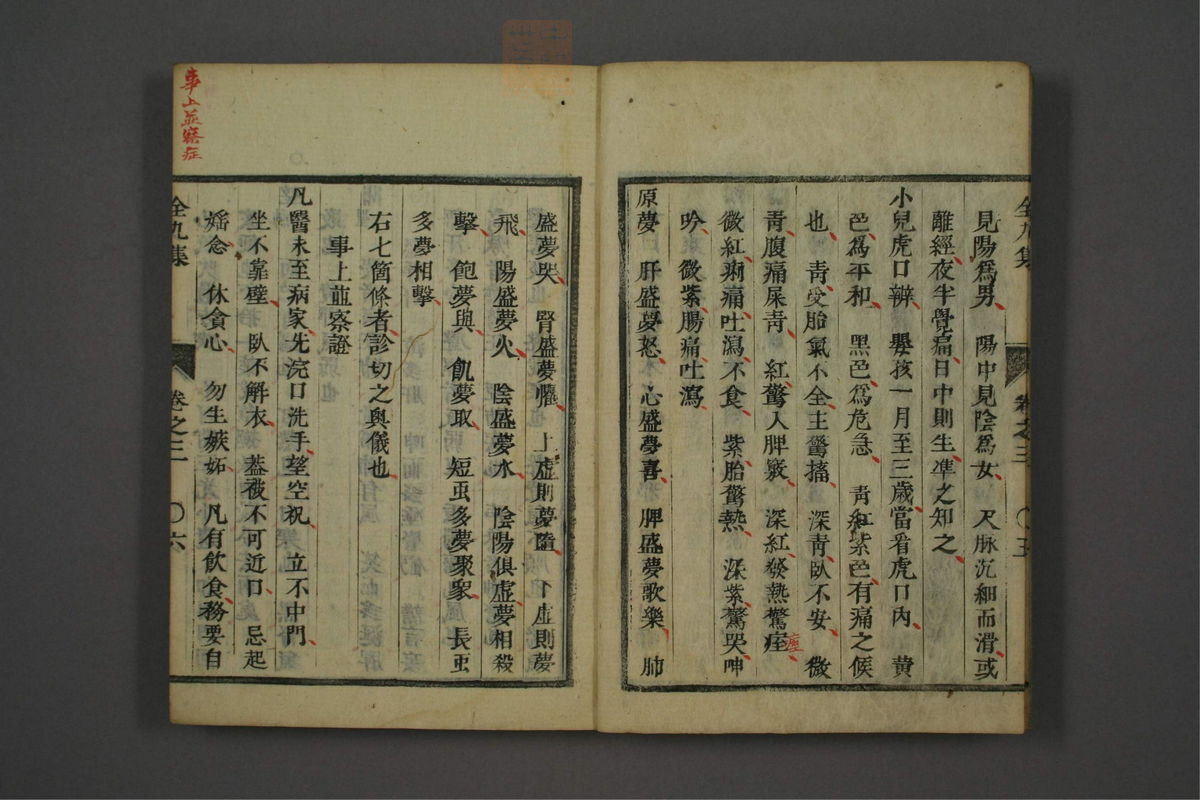 全九集 卷之三 〇五
見陽爲男 陽中見陰爲女 尺脉沉細而滑或
離經夜半覺痛日中則生準之知之
小兒虎口辨 嬰孩一月至三歲當看虎口內 黃
色爲平和 黑色爲危急 靑紅紫色有痛之候
也 靑受胎氣不全主驚搐 深靑臥不安 微
靑腹痛屎靑 紅驚人脾竅 深紅發熱驚痓
痙
微紅痢痛吐瀉不食 紫胎驚熱 深紫驚哭呻
吟 微紫腸痛吐瀉
原夢 肝盛夢怒 心盛夢喜 脾盛夢歌樂 肺
盛夢哭 腎盛夢懼 上虛則夢墮 下虛則夢
飛 陽盛夢火 陰盛夢水 陰陽俱虛夢相殺
擊 飽夢與 飢夢取 短䖝多夢聚衆 長䖝
多夢相擊
右七箇條者診切之與儀也
事上並察證
凡醫未至病家先浣口洗手望空祝 立不中門
坐不靠壁 臥不解衣 蓋被不可近口 忌起
婬念 休貪心 勿生嫉妬 凡有飮食務要自
全九集 卷之三 〇六
事上並察症